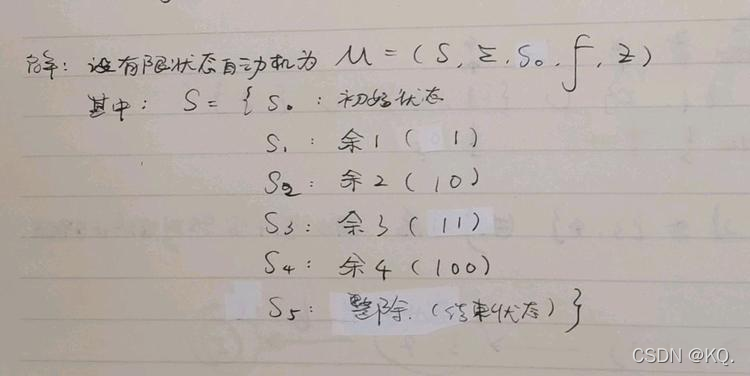 解: 设有限状态自动机为 M = (S, Σ, S₀, f, Z)
其中: S = { S₀: 初始状态
S₁: 余1 ( 1)
S₂: 余2 (10)
S₃: 余3 (11)
S₄: 余4 (100)
S₅: 整除. (结束状态) }
CSDN @KQ.